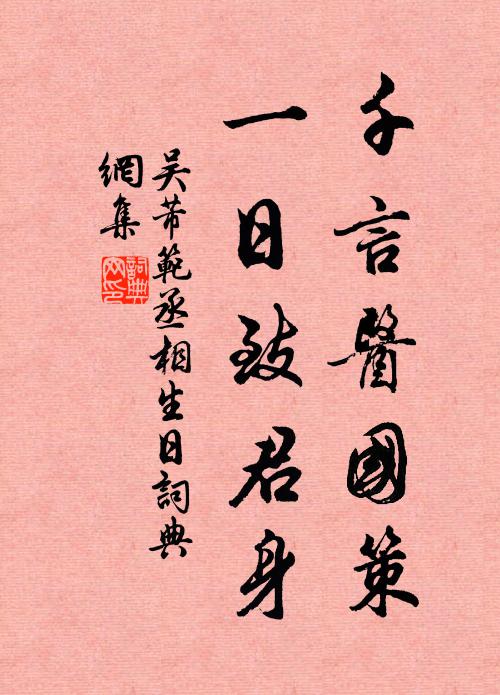 千言醫國策
一日致君身
吴芾範丞相生日詞典
網集
詞典
网印